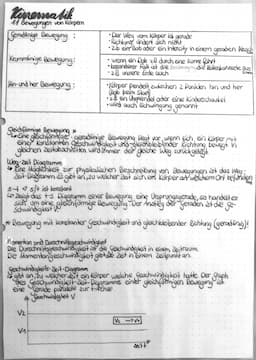 Kinematik
Bewegungen von Körpern
Geradlinige Bewegung :
- Der Weg vom Körper ist gerade
- Richtung ändert sich nicht
- z.B ein Auto oder ein in einem geraden
Krummlinige Bewegung :
- wenn ein Zug durch eine Kurve fährt
- z.B unsere Erde auch
Hin-und her Bewegung :
- Körper pendelt zwischen 2 Punkten hin und her
- z.B ein Uhrpendel oder eine Kinderschaukel
- wird auch Schwingung genannt
Gleichförmige Bewegung *
- Eine gleichförmige geradlinige Bewegung liegt vor, wenn sich ein Körper mit
einer konstanten Geschwindigkeit und gleichbleibender Richtung bewegt. In
gleichen Zeitabschnitten wird immer der gleiche Weg zurückgelegt
Weg-Zeit Diagramm
- Eine Möglichkeit zur physikalischen Beschreibung von Bewegungen ist das Weg-
Zeit-Diagramm. Es gibt an, zu welcher Zeit sich ein Körper an welchem Ort befindet
s~t → s/t ist konstant
- Zeigt das t-s Diagramm einer Bewegung eine Ursprungsgerade, so handelt es
sich um eine gleichförmige Bewegung. Der Anstieg der Geraden ist die Ge-
schwindigkeit
* Bewegung mit konstanter Geschwindigkeit und gleichbleibender Richtung (geradlinig)!
Momentan und Durchschnittsgeschwindigkeit
Die Durchschnittsgeschwindigkeit ist die Geschwindigkeit in einem Zeitraum.
Die Momentangeschwindigkeit ist die Zeit in einem Zeitpunkt an.
Geschwindigkeit-Zeit-Diagramm
Es gibt an, zu welcher Zeit ein Körper welche Geschwindigkeit hatte. Der Graph
des Geschwindigkeit-Zeit-Diagramms einer gleichförmigen Bewegung ist
eine Gerade parallel zur t-Achse
Geschwindigkeit v
V2
V1
Zeit t